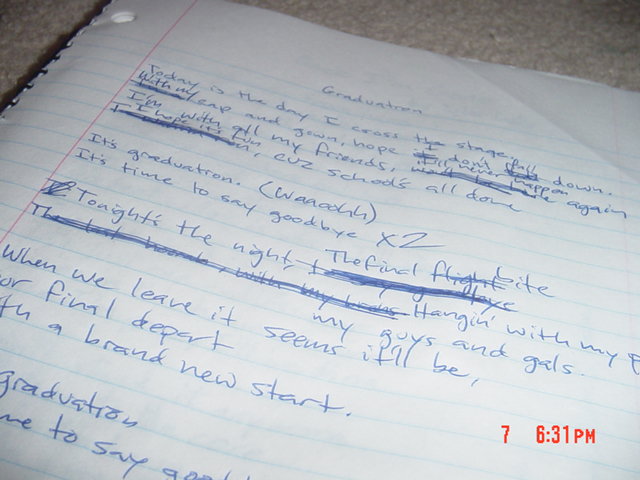 Graduation
Today is the day I cross the stage.
With my cap and gown, hope I don't fall down.
I'm with all my friends, will never happen again
I hope it's fun, cuz school's all done
It's graduation. (Waaoohh)
It's time to say goodbye x2
Tonight's the night, The final flight bite
The last hoorah, with my Hangin' with my
my guys and gals.
When we leave it seems it'll be,
or final depart
th a brand new start.
graduation
me to say
7 6:31PM